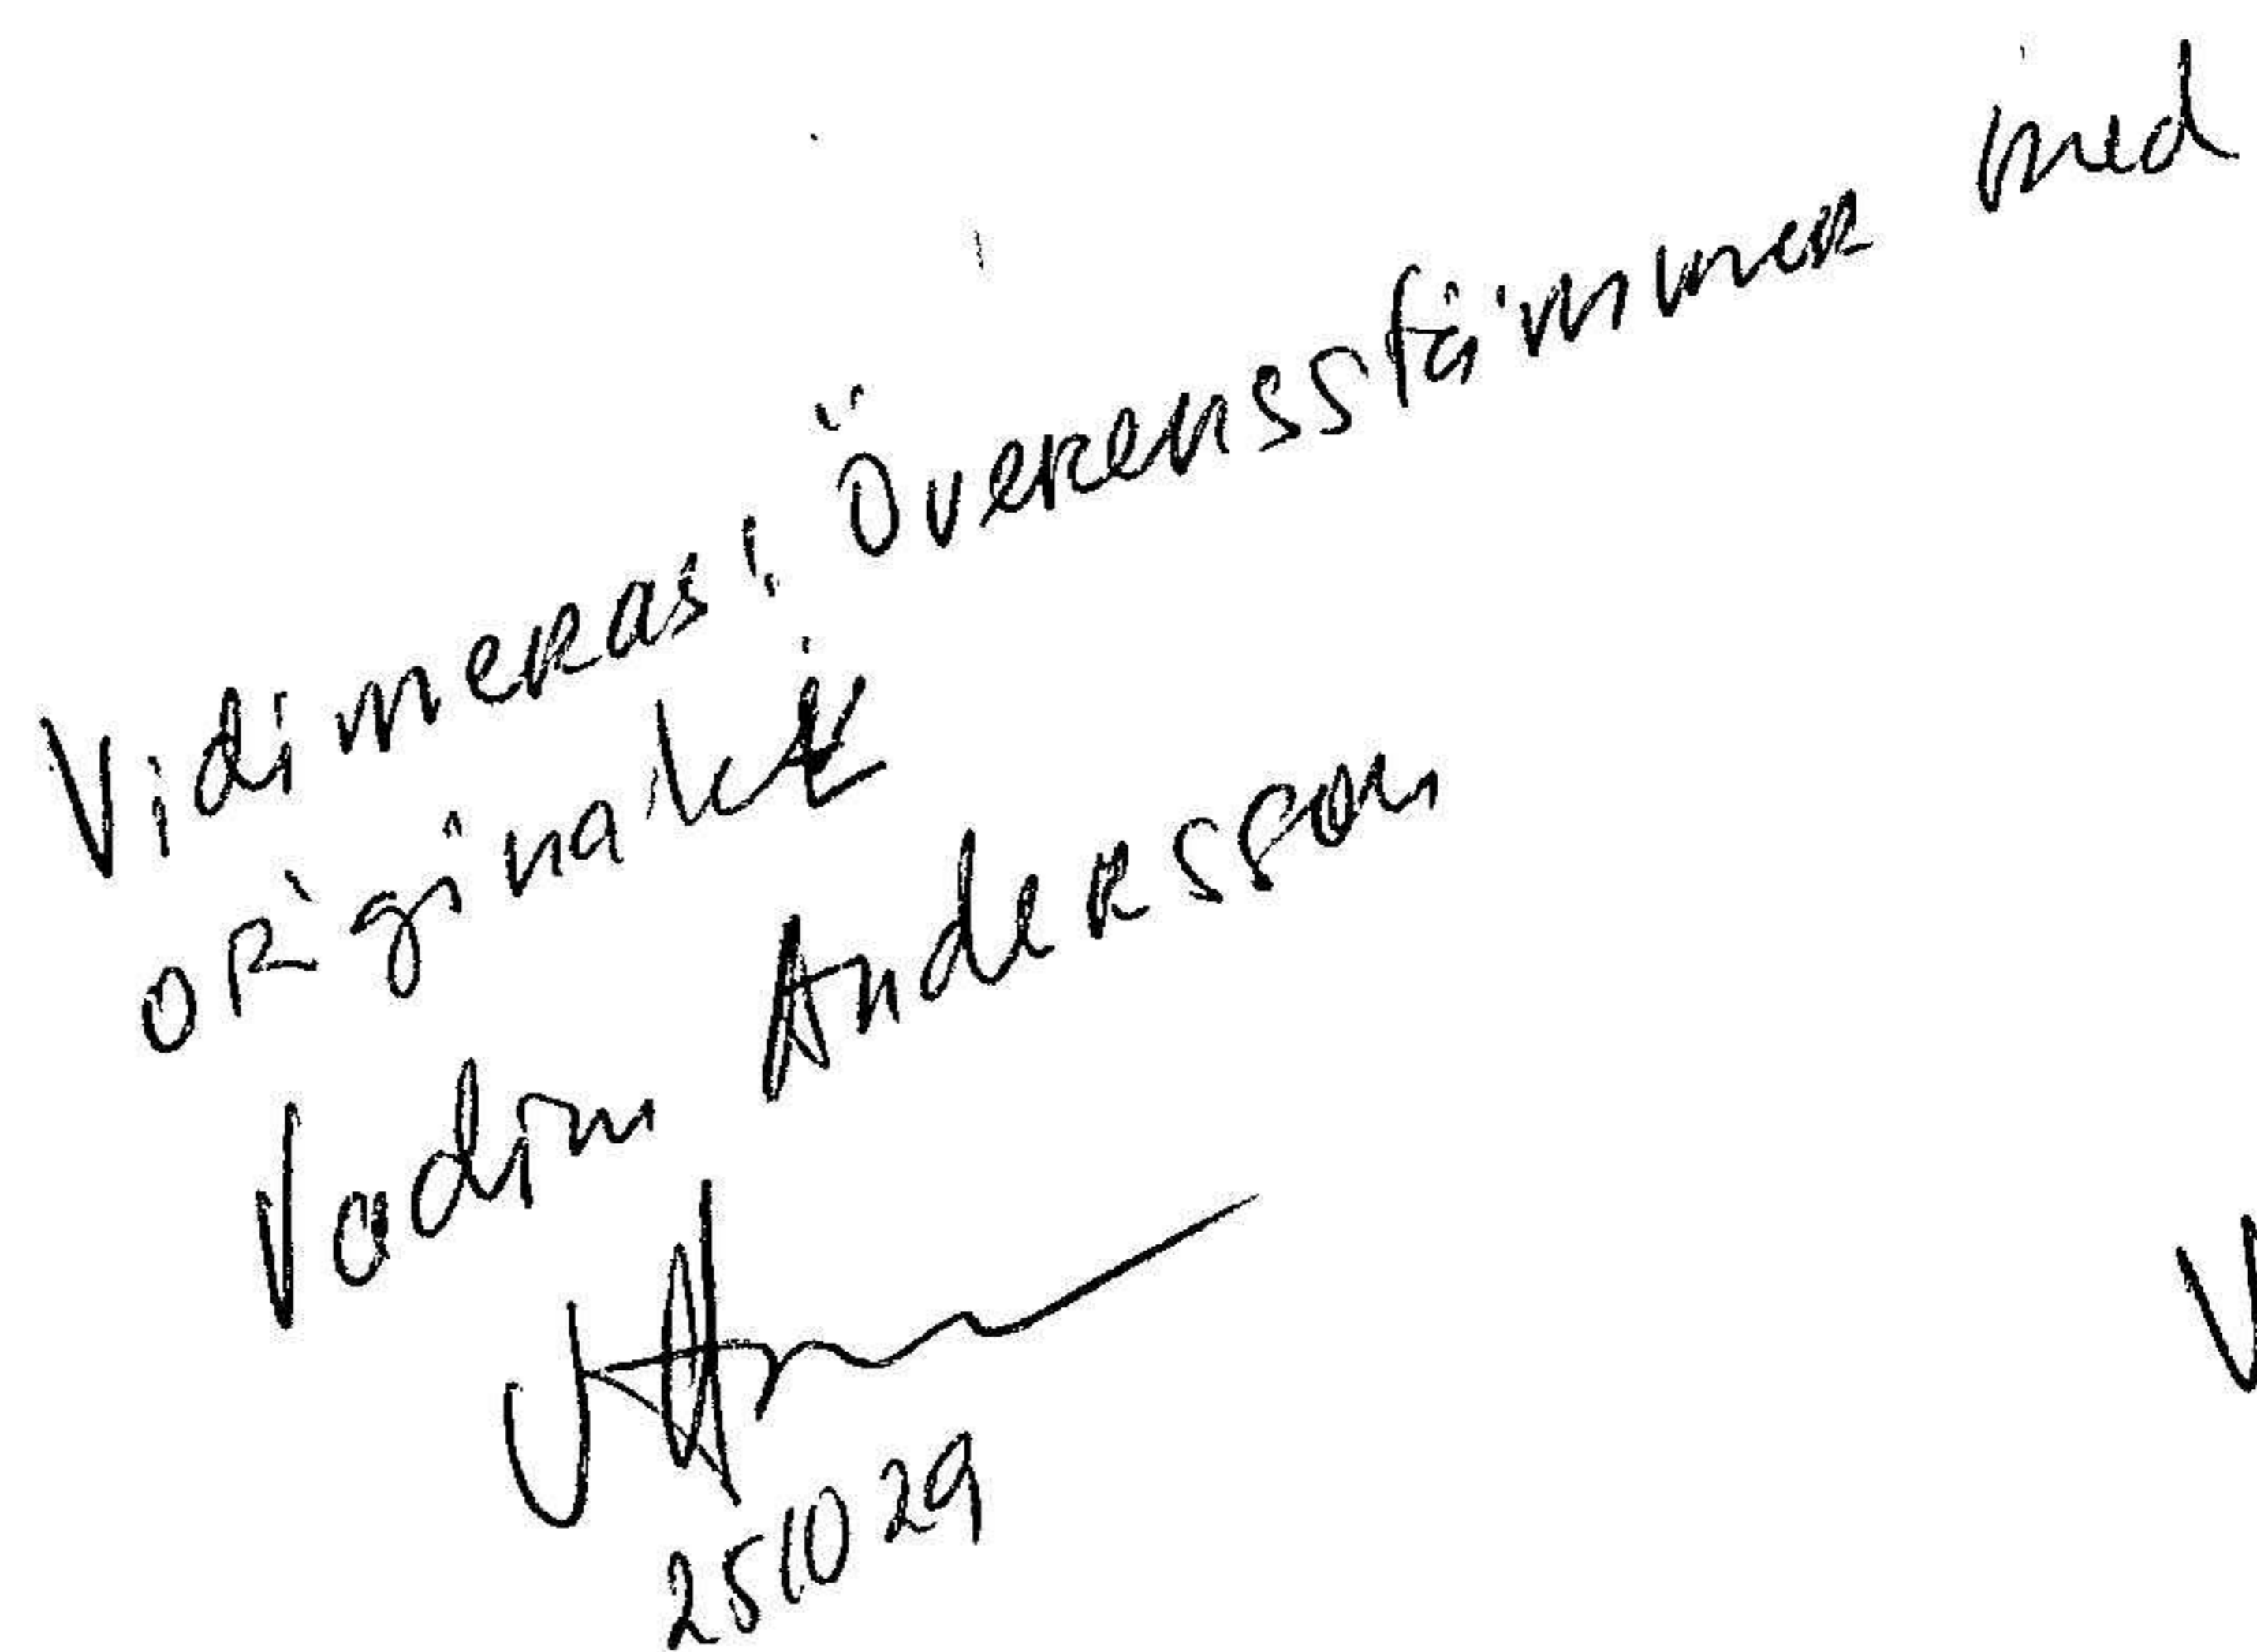 Vidimeras: Överensstämmer med
originalet
Vadim Andersson
251029